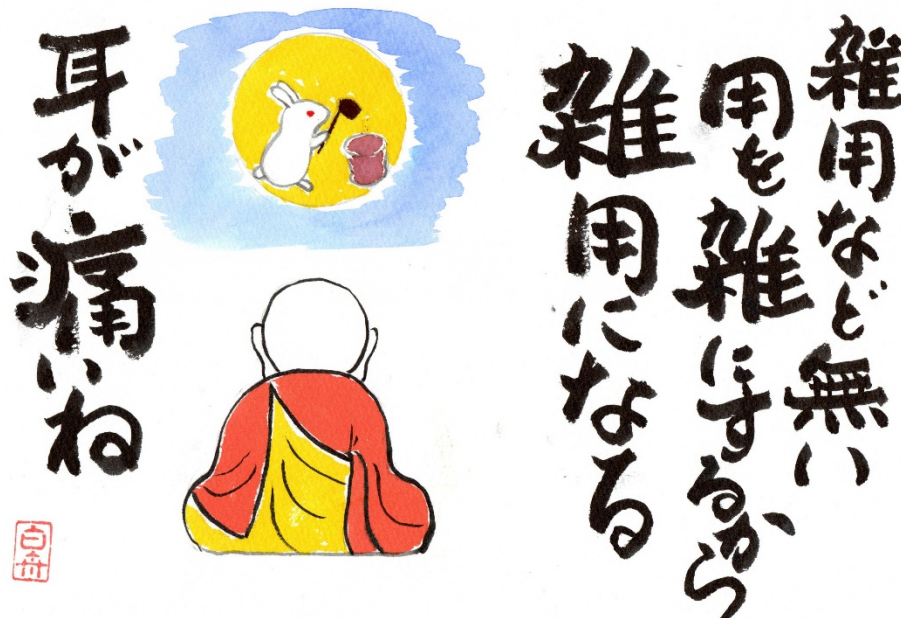 雑用など無い
用を雑にするから
雑用になる
耳が痛いね
白舟